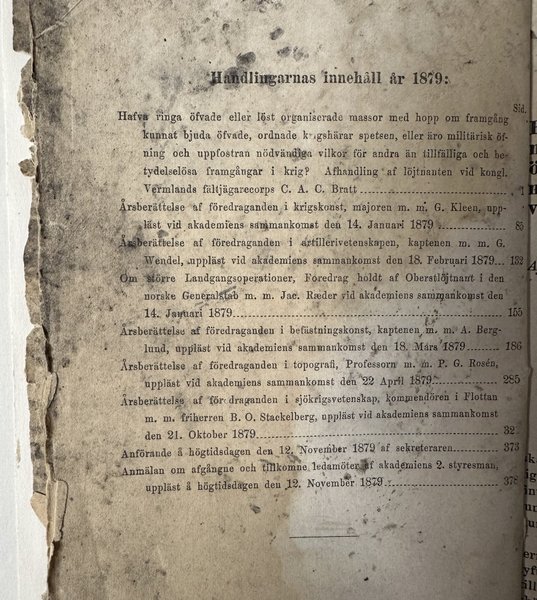 Handlingarnas innehåll år 1879:
Sid.
Hafva ringa öfvade eller löst organiserade massor med hopp om framgång
kunnat bjuda öfvade, ordnade krigshärar spetsen, eller äro militärisk öf-
ning och uppfostran nödvändiga vilkor för andra än tillfälliga och be-
tydelselösa framgångar i krig? Afhandling af löjtnanten vid kongl.
Vermlands fältjägarecorps C. A. C. Bratt 1
Årsberättelse af föredraganden i krigskonst, majoren m. m. G. Kleen, upp-
läst vid akademiens sammankomst den 14. Januari 1879
Årsberättelse af föredraganden i artillerivetenskapen, kaptenen m. m. G.
Wendel, uppläst vid akademiens sammankomst den 18. Februari 1879 132
Om större Landgangsoperationer, Foredrag holdt af Oberstlöjtnant i den
norske Generalstab m. m. Jac. Ræder vid akademiens sammankomst den
14. Januari 1879 155
Årsberättelse af föredraganden i befästningskonst, kaptenen m. m. A. Berg-
lund, uppläst vid akademiens sammankomst den 18. Mars 1879 186
Årsberättelse af föredraganden i topografi, Professorn m. m. P. G. Rosén,
uppläst vid akademiens sammankomst den 22 April 1879 285
Årsberättelse af för draganden i sjökrigsvetenskap, kommendören i Flottan
m. m. friherren B. O. Stackelberg, uppläst vid akademiens sammankomst
den 21. Oktober 1879 32
Anförande å högtidsdagen den 12. November 1879 af sekreteraren 373
Anmälan om afgångne och tillkomne ledamöter af akademiens 2. styresman,
uppläst å högtidsdagen den 12. November 1879 378